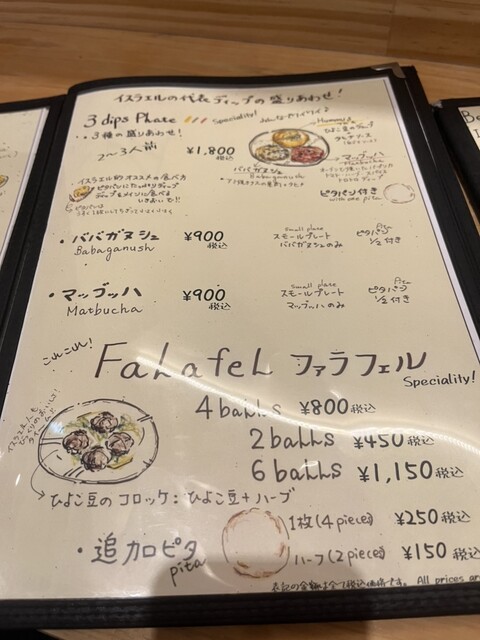 イスラエルの代表ディップの盛りあわせ!
3 dips Plate Speciality!
Hummus
・3種の盛りあわせ!
2~3人前 ¥1,800 税込
ババガヌシュ
Babaganush
マッブッハ
Matbucha
イスラエル的オススメの食べ方
ピタパン付き
with one pita
・ババガヌシュ ¥900 税込
Babaganush
small plate
スモールプレート
ババガヌシュのみ
Pita
ピタパン
1/2付き
・マッブッハ ¥900 税込
Matbucha
small plate
スモールプレート
マッブッハのみ
Pita
ピタパン
1/2付き
これこれ!
FaLafeL ファラフェル
Speciality!
4 baLLs ¥800 税込
2 baLLs ¥450 税込
6 baLLs ¥1,150 税込
ひよこ豆のコロッケ:ひよこ豆+ハーブ
・追加ピタ
pita
1枚(4 piece) ¥250 税込
ハーフ(2 piece) ¥150 税込
表記の金額は全て税込価格です。 All prices are
Be